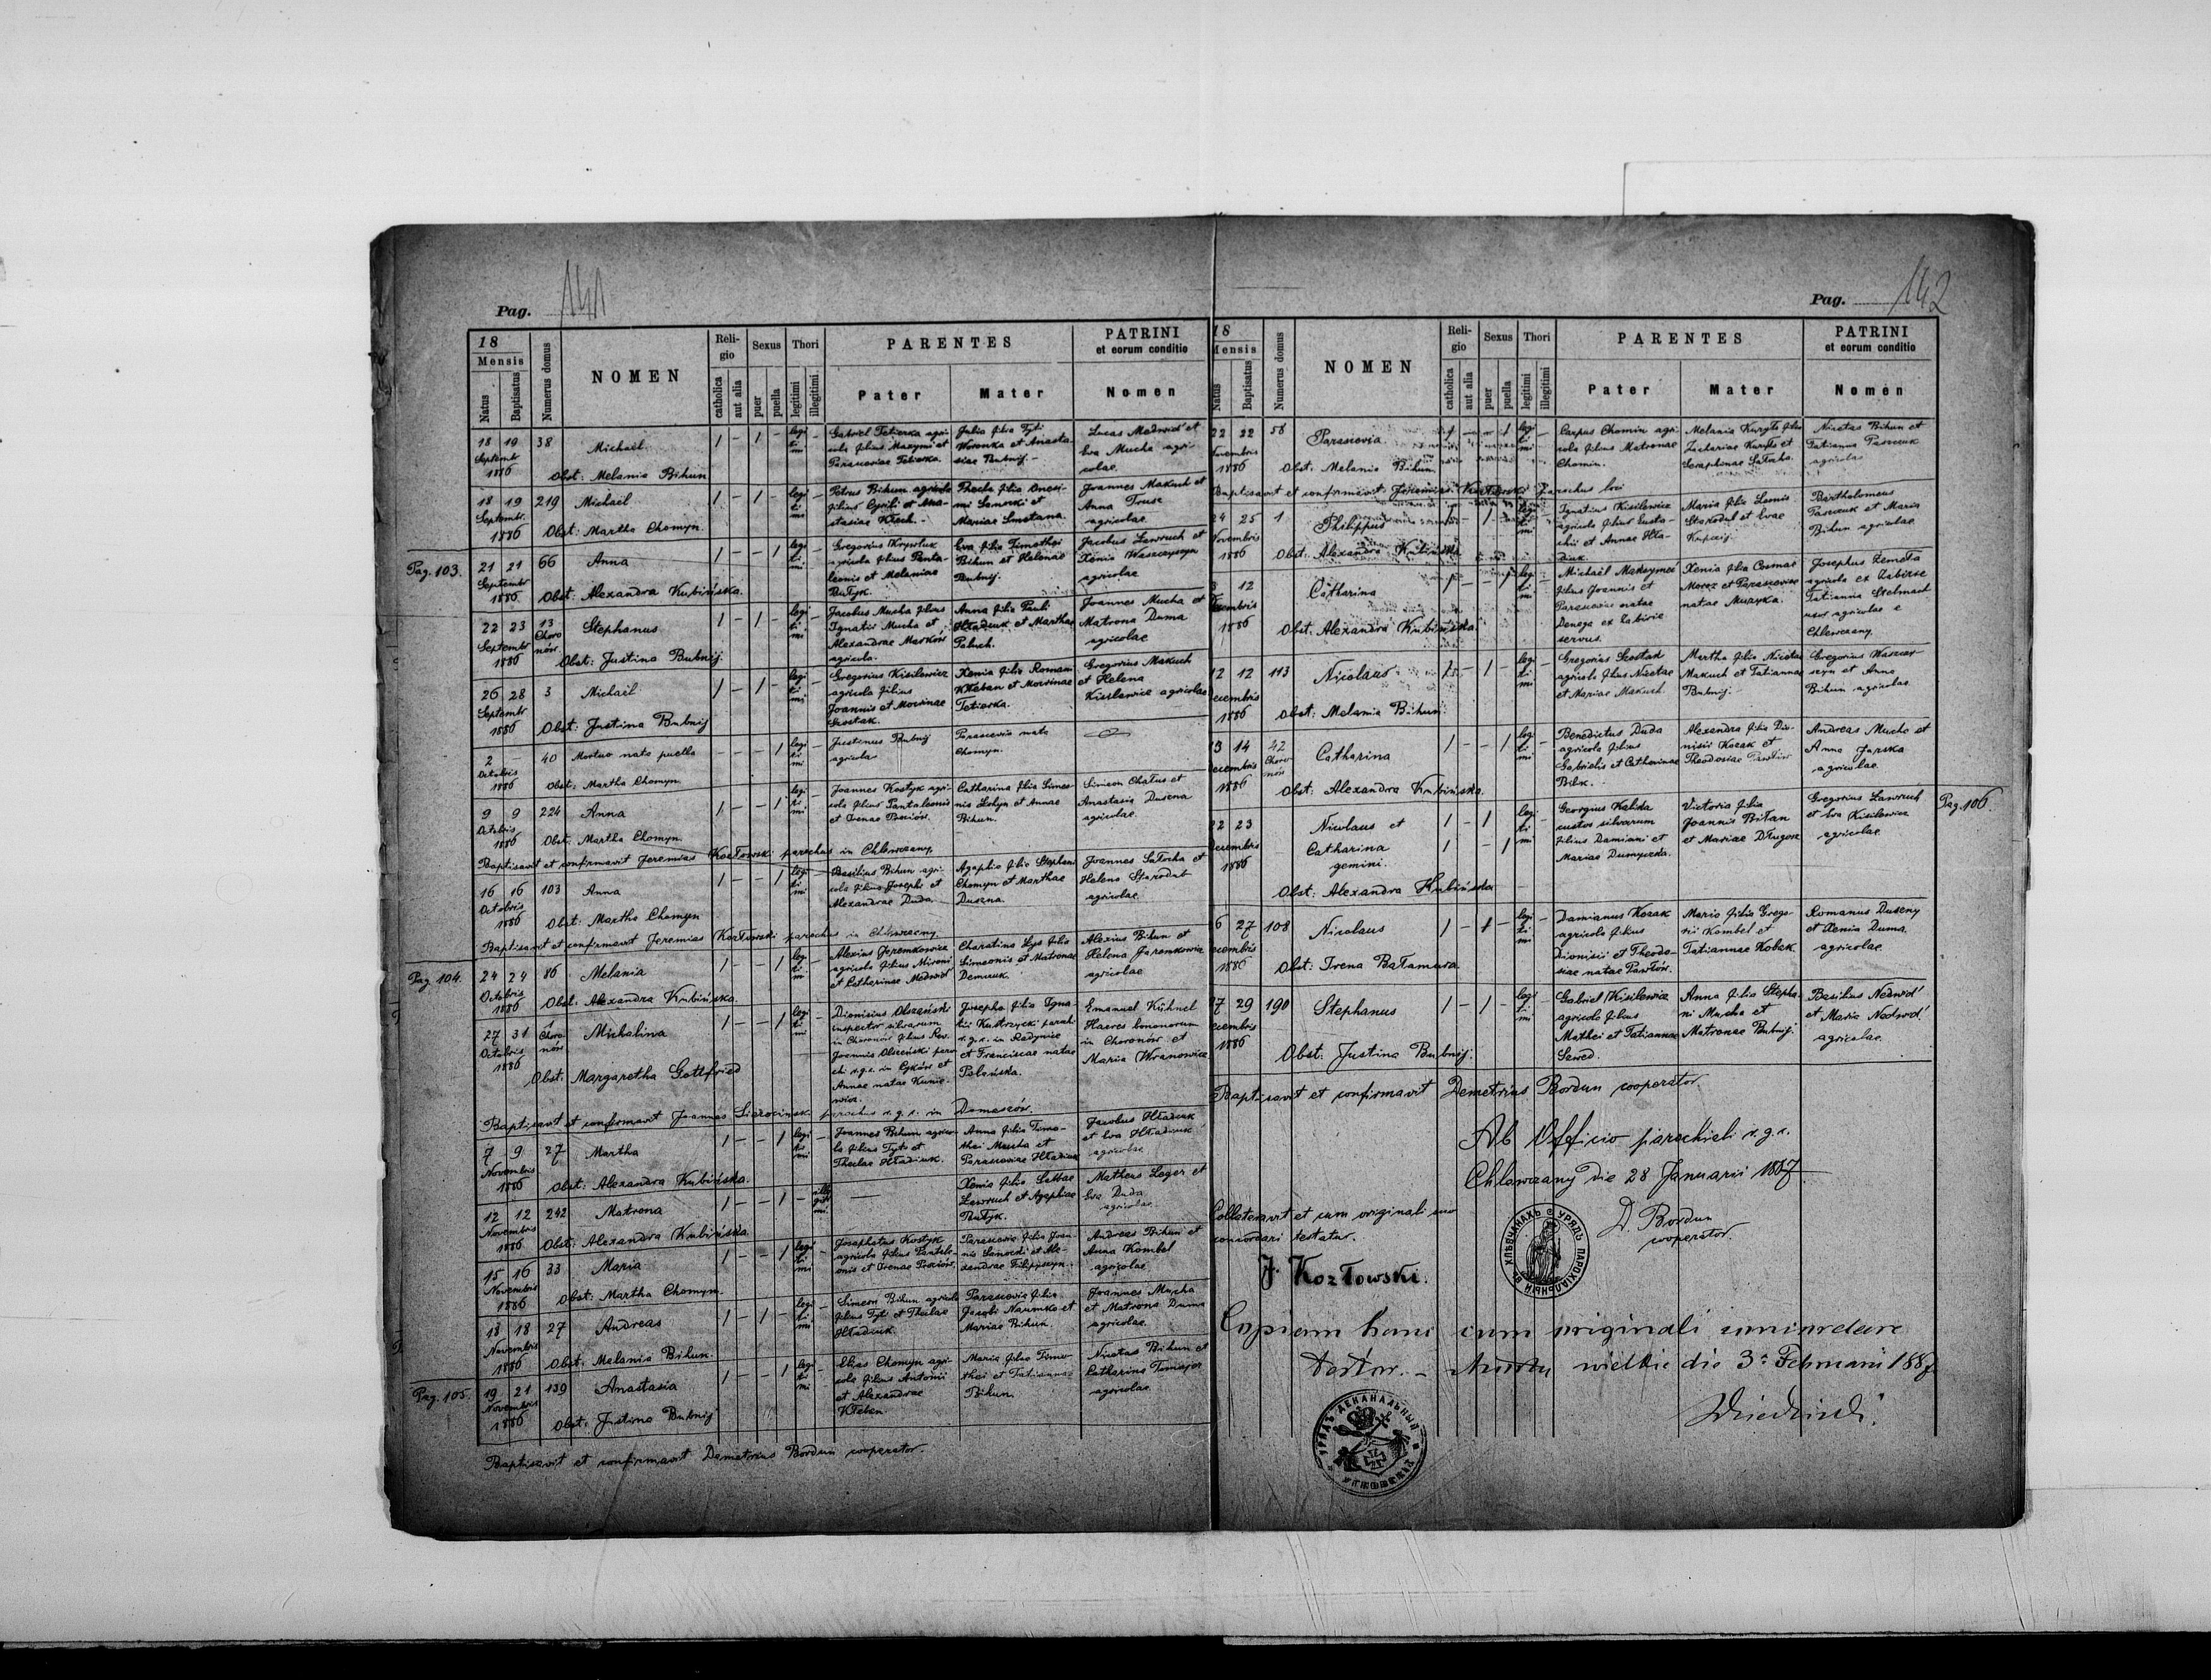 Pag. 141
18
Mensis
Natus
Baptisatus
Numerus domus
NOMEN
Religio
catholica
aut alia
Sexus
puer
puella
Thori
legitimi
illegitimi
PARENTES
Pater
Mater
PATRINI
et eorum conditio
Nomen
18 19 38 Michaël 1 – 1 – legitimi –
Septembr 1886
Gabriel Tetierka agricola filius Maxymi et Parasceviae Tetierka.
Julia filia Tyti Woronka et Anastasiae Bubnij.
Lucas Medwid et Eva Mucha agricolae.
Obst: Melania Bihun
18 19 219 Michaël 1 – 1 – legitimi –
Septembr. 1886
Petrus Bihun agricola filius Cyrili et Anastasiae Kłach.
Thecla filia Onesimi Sanocki et Mariae Smetana.
Joannes Makuch et Anna Truse agricolae
Obst: Martha Chomyn.
Pag. 103.
21 21 66 Anna 1 – – 1 legitimi –
Septembr 1886
Gregorius agricola filius Pantaleonis et Melaniae Bułyk.
Eva filia Timothei Bihun et Helenae Bubnij.
Jacobus Lawruch et Xenia Waszczyszyn agricolae
Obst: Alexandra Kubińska.
22 23 13 Choronów Stephanus 1 – 1 – legitimi –
Septembr 1886
Jacobus Mucha filius Ignatii Mucha et Alexandrae Marków agricola.
Anna filia Pauli Hładiuk et Marthae Paluch.
Joannes Mucha et Matrona Duma agricolae
Obst: Justina Bubnij.
26 28 3 Michaël 1 – 1 – legitimi –
Septembr 1886
Gregorius Kisilewicz agricola filius Joannis et Mocrinae Szostak.
Xenia filia Romani Kłeban et Mocrinae Tetierka.
Gregorius Makuch et Helena Kisilewicz agricolae
Obst: Justina Bubnij
2 – 40 Mortuo nata puella – – – 1 legitimi –
Octobris 1886
Justinus Bubnij agricola
Parascevia nata Chomyn.
Obst: Martha Chomyn.
9 9 224 Anna 1 – – 1 legitimi –
Octobris 1886
Joannes Kostyk agricola filius Pantaleonis et Irenae
Catharina filia Simeonis et Annae Bihun.
Simeon Chałus et Anastasia Dusena agricolae.
Obst: Martha Chomyn.
Baptisavit et confirmavit Jeremias Kozłowski parochus in Chlewczany.
16 16 103 Anna 1 – – 1 legitimi –
Octobris 1886
Basilius Bihun agricola filius Josephi et Alexandrae Duda.
Agaphia filia Stephani Chomyn et Marthae Dusena.
Joannes Satocha et Helena Starodub agricolae.
Obst: Martha Chomyn
Baptisavit et confirmavit Jeremias Kozłowski parochus in Chlewczany.
Pag. 104.
24 24 86 Melania 1 – – 1 legitimi –
Octobris 1886
Alexius Jeremkowicz agricola filius Mironi et Catherinae Medwid
Charatina Lys filia Simeonis et Matronae Demczuk.
Alexius Bihun et Helena Jaremkowicz agricolae
Obst. Alexandra Kubińska.
27 31 1 Choronów Michalina 1 – – 1 legitimi –
Octobris 1886
Dionisius Olszański inspector silvarum in Choronów filius Rev. Joannis Olszański parochi r.g.c. in Łyków et Annae natae Kuniewicz.
Josepha filia Ignatii Kustrzycki parochi r.g.c. in Radynice et Franciscae natae Polańska.
Emanuel Kühnel Haeres bonorum in Choronów et Maria Wranowicz
Obst. Margaretha Gottfried
Baptisavit et confirmavit Joannes Sierociński parochus r.g.c. in Domaszów.
7 9 27 Martha 1 – – 1 legitimi –
Novembris 1886
Joannes Bihun agricola filius Tyti et Theclae Hładiuk.
Anna filia Timothei Mucha et Parasceviae Hładiuk
Jacobus Hładiuk et Eva Hładiuk agricolae
Obst: Alexandra Kubińska.
12 12 242 Matrona 1 – – 1 – illegitimi
Novembris 1886
Xenia filia Sabbae Lawruch et Agaphiae Bułyk.
Matheus Lager et Eva Duda agricolae.
Obst: Alexandra Kubińska
15 16 33 Maria 1 – – 1 legitimi –
Novembris 1886
Josephatus Kostyk agricola filius Pantaleonis et Irenae
Parascevia filia Joannis Sanocki et Alexandrae Filipiszyn.
Andreas Bihun et Anna Kombel agricolae
Obst: Martha Chomyn.
18 18 27 Andreas 1 – 1 – legitimi –
Novembris 1886
Simeon Bihun agricola filius Tyti et Theclae Hładiuk.
Parascevia filia Jacobi Naumko et Mariae Bihun.
Joannes Mucha et Matrona Duma agricolae.
Obst. Melania Bihun.
Pag. 105.
19 21 139 Anastasia 1 – – 1 legitimi –
Novembris 1886
Elias Chomyn agricola filius Antonii et Alexandrae Kłeban
Maria filia Timothei et Tatiannae Bihun.
Nicetas Bihun et Catharina agricolae
Obst: Justina Bubnij
Baptisavit et confirmavit Demetrius Bordun cooperator.
Pag. 142
18
Mensis
Natus
Baptisatus
Numerus domus
NOMEN
Religio
catholica
aut alia
Sexus
puer
puella
Thori
legitimi
illegitimi
PARENTES
Pater
Mater
PATRINI
et eorum conditio
Nomen
22 22 58 Parascevia 1 – – 1 legitimi –
Novembris 1886
Carpus Chomin agricola filius Matronae Chomin.
Melania Kuryło filia Zachariae Kuryło et Seraphinae Satocha.
Nicetas Bihun et Tatianna agricolae
Obst. Melania Bihun
Baptisavit et confirmavit Jeremias Kozłowski parochus loci
24 25 1 Philippus 1 – 1 – legitimi –
Novembris 1886
Ignatius Kisilewicz agricola filius Eustachii et Annae Hładiuk.
Maria filia Leonis Starodub et Evae
Bartholomeus et Maria Bihun agricolae
Obst. Alexandra Kubińska
3 12 Catharina 1 – – 1 legitimi –
Decembris 1886
Michaël Maksymec filius Joannis et Parasceviae natae Denega ex Zabirie servus.
Xenia filia Cosmae Moroz et Parasceviae natae Muzyka.
Josephus Zemeła agricola ex Zabirie Tatianna Stelmach uxor agricolae e Chlewczany.
Obst. Alexandra Kubińska.
12 12 113 Nicolaus 1 – 1 – legitimi –
Decembris 1886
Gregorius Szostak agricola filius Nicetae et Mariae Makuch.
Martha filia Nicetae Makuch et Tatiannae Bubnij.
Gregorius Waszczyszyn et Anna Bihun agricolae
Obst. Melania Bihun.
13 14 42 Choronów Catharina 1 – – 1 legitimi –
Decembris 1886
Benedictus Duda agricola filius Gabrielis et Catherinae Bilek.
Alexandra filia Dionisii Kozak et Theodosiae Pawłów
Andreas Mucha et Anna Jurska agricolae
Obst: Alexandra Kubińska.
Pag. 106.
22 23 Nicolaus et Catharina gemini.
1 – 1
1 – – 1
legitimi –
Decembris 1886
Georgius Kalika custos silvarum filius Damiani et Mariae Dumycka.
Victoria filia Joannis Britan et Mariae Długosz
Gregorius Lawruch et Eva Kisilewicz agricolae
Obst: Alexandra Kubińska
26 27 108 Nicolaus 1 – 1 – legitimi –
Decembris 1886
Damianus Kozak agricola filius Dionisii et Theodosiae natae Pawłów.
Maria filia Gregorii Kombel et Tatiannae Kobak.
Romanus Duseny et Xenia Duma agricolae.
Obst: Irena Bałamura
27 29 190 Stephanus 1 – 1 – legitimi –
Decembris 1886
Gabriel Kisilewicz agricola filius Mathei et Tatiannae Szwed.
Anna filia Stephani Mucha et Matronae Bubnij
Basilius Nedwid et Maria Nedwid agricolae.
Obst. Justina Bubnij.
Baptisavit et confirmavit Demetrius Bordun cooperator.
Ab Officio parochiali r.g.c.
Chlewczany die 28 Januarii 1887.
D. Bordun
cooperator.
Collateravit et cum originali suo
concordari testatur.
J. Kozłowski.
УРЯДЪ ПАРОХІАЛЬНЫЙ ВЪ ХЛѢВЧАНАХЪ
Copiam hanc cum originali concordare
testor. – wielkie die 3ª Februarii 1887
УРЯДЪ ДЕКАНАЛЬНЫЙ